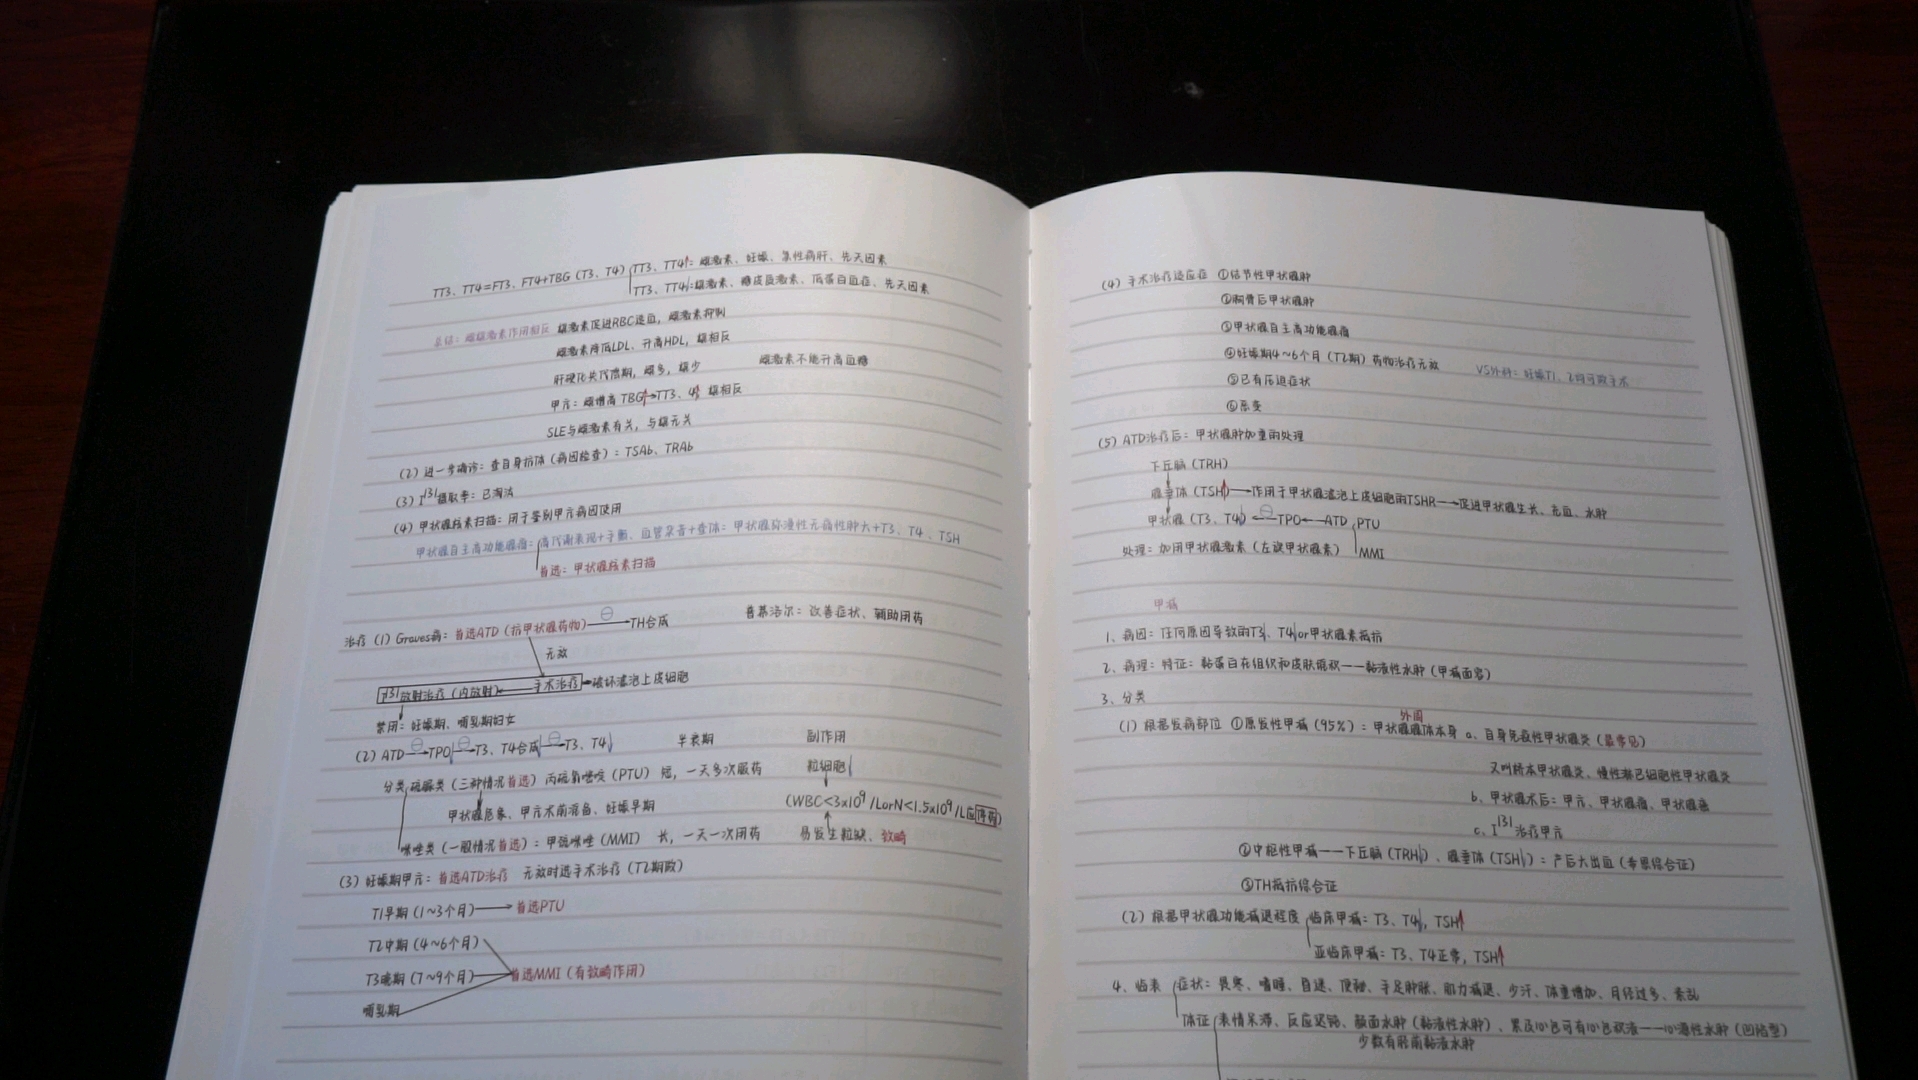 TT3、TT4=FT3、FT4+TBG（T3、T4） TT3、TT4↑：雌激素、妊娠、急性病肝、先天因素
TT3、TT4↓：雄激素、糖皮质激素、低蛋白血症、先天因素
总结：雌雄激素作用相反 雄激素促进RBC造血，雌激素抑制
雌激素降低LDL、升高HDL，雄相反
肝硬化失代偿期，雌多，雄少 雌激素不能升高血糖
甲亢：雌增高TBG↑→TT3、4↑ 雄相反
SLE与雌激素有关，与雄无关
（2）进一步确诊：查自身抗体（病因检查）：TSAb、TRAb
（3）I131摄取率：已淘汰
（4）甲状腺核素扫描：用于鉴别甲亢病因使用
甲状腺自主高功能腺瘤：高代谢表现+手颤、血管杂音+查体：甲状腺弥漫性无痛性肿大+T3、T4、TSH
首选：甲状腺核素扫描
治疗（1）Graves病：首选ATD（抗甲状腺药物）—⊖→TH合成 普萘洛尔：改善症状、辅助用药
无效
I131放射治疗（内放射）←手术治疗→破坏滤泡上皮细胞
禁用：妊娠期、哺乳期妇女
（2）ATD—⊖→TPO↓—⊖→T3、T4合成↓—⊖→T3、T4↓ 半衰期 副作用
分类 硫脲类（三种情况首选）丙硫氧嘧啶（PTU） 短，一天多次服药 粒细胞↓
甲状腺危象、甲亢术前准备、妊娠早期 （WBC<3x10⁹/LorN<1.5x10⁹/L应停药）
咪唑类（一般情况首选）：甲巯咪唑（MMI） 长，一天一次用药 易发生粒缺、致畸
（3）妊娠期甲亢：首选ATD治疗 无效时选手术治疗（T2期做）
T1早期（1~3个月）→首选PTU
T2中期（4~6个月）
T3晚期（7~9个月） 首选MMI（有致畸作用）
哺乳期
（4）手术治疗适应症 ①结节性甲状腺肿
②胸骨后甲状腺肿
③甲状腺自主高功能腺瘤
④妊娠期4~6个月（T2期）药物治疗无效 VS外科：妊娠T1、2均可做手术
⑤已有压迫症状
⑥恶变
（5）ATD治疗后：甲状腺肿加重的处理
下丘脑（TRH）
腺垂体（TSH↑）→作用于甲状腺滤泡上皮细胞的TSHR→促进甲状腺生长、充血、水肿
甲状腺（T3、T4↓）←⊖—TPO←ATD PTU
处理：加用甲状腺激素（左旋甲状腺素） MMI
甲减
1、病因：任何原因导致的T3↓、T4↓or甲状腺素抵抗
2、病理：特征：黏蛋白在组织和皮肤堆积——黏液性水肿（甲减面容）
3、分类
外周
（1）根据发病部位 ①原发性甲减（95%）：甲状腺腺体本身 a、自身免疫性甲状腺炎（最常见）
又叫桥本甲状腺炎、慢性淋巴细胞性甲状腺炎
b、甲状腺术后：甲亢、甲状腺瘤、甲状腺癌
c、I131治疗甲亢
②中枢性甲减——下丘脑（TRH↓）、腺垂体（TSH↓）：产后大出血（希恩综合征）
③TH抵抗综合征
（2）根据甲状腺功能减退程度 临床甲减：T3、T4↓，TSH↑
亚临床甲减：T3、T4正常，TSH↑
4、临表 症状：畏寒、嗜睡、便秘、手足肿胀、肌力减退、少汗、体重增加、月经过多、紊乱
体征 表情呆滞、反应迟钝、颜面水肿（黏液性水肿）、累及心包可有心包积液——心源性水肿（凹陷型）
少数有胫前黏液水肿